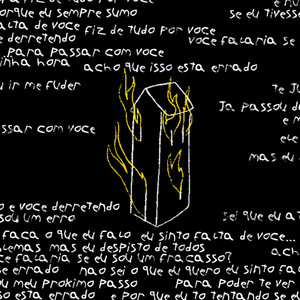 te ju
e nu
porque eu sempre sumo
se eu tivess
falta de voce
fiz de tudo por voce
e derretendo
voce falaria se
para passar com voce
minha hora
acho que isso esta errado
u ir me fuder
te Ju
Ja passou d
e m
ssar com voce
ele
mas eu
o e voce derretendo
sou um erro
sei que eu a
faca o que eu falo
eu sinto falta de voce...
lemas mas eu despisto de todos
ach
ce falaria se eu sou um fracasso?
e errado
nao sei o que eu quero
eu sinto fal
u meu proximo passo
para poder te ver
esta errado
e por que eu to tentando se